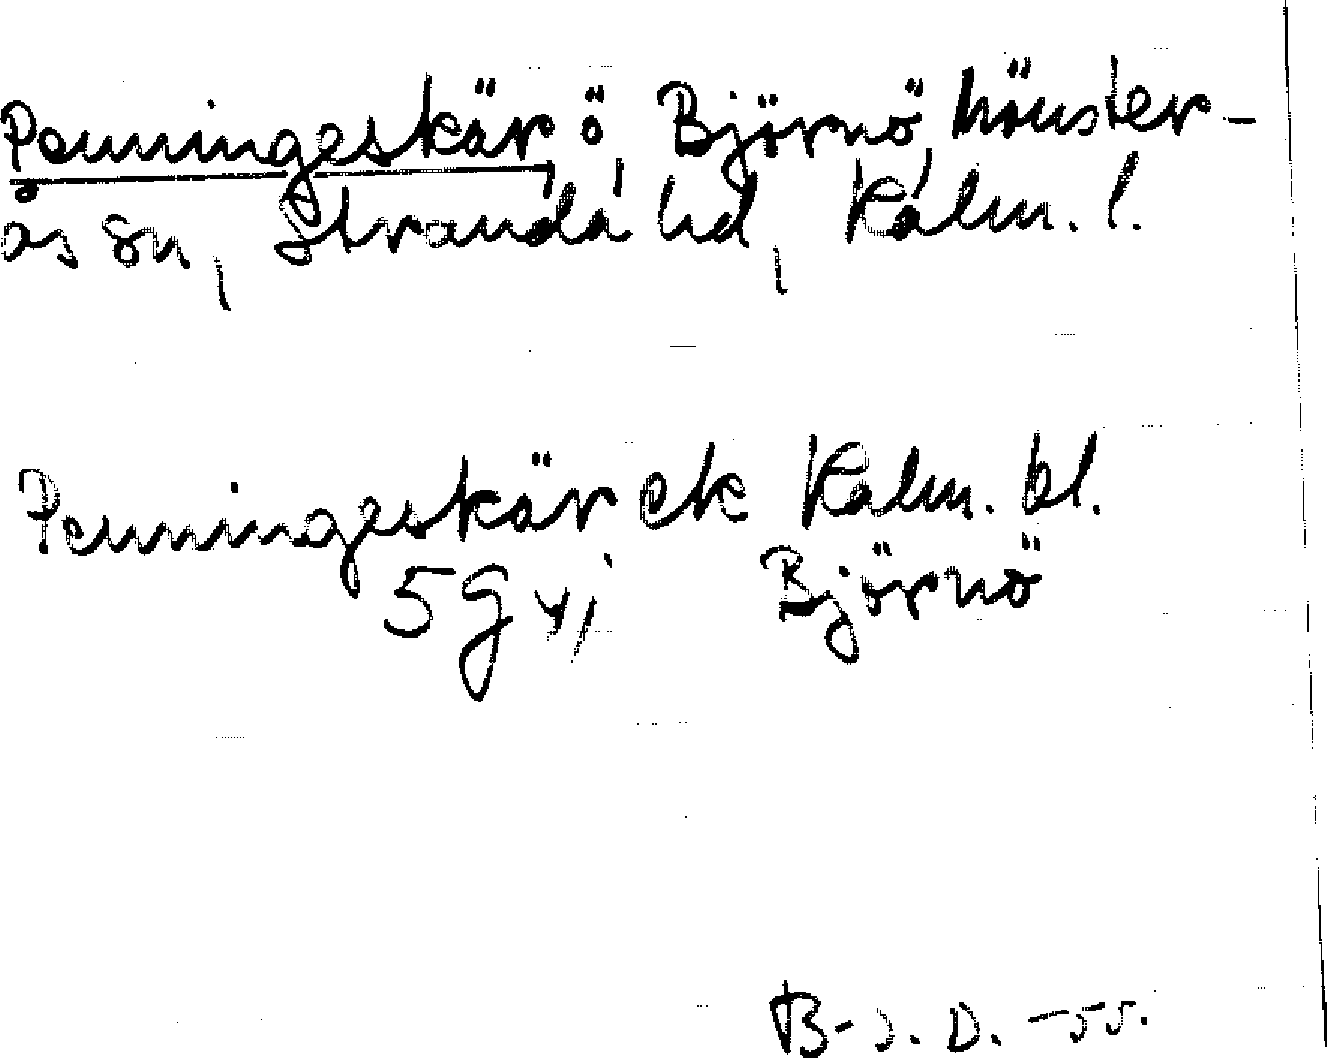 Penningeskär, ö, Björnö, Mönster-
ås sn, Stranda hd, Kalm. l.
Penningeskär ek Kalm. bl.
5 g Björnö
B-J. D. -55.